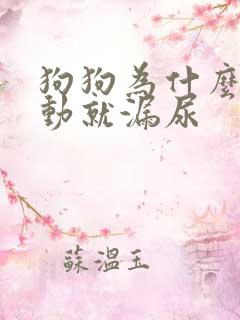 狗狗為什麼
動就漏尿
蘇溫玉